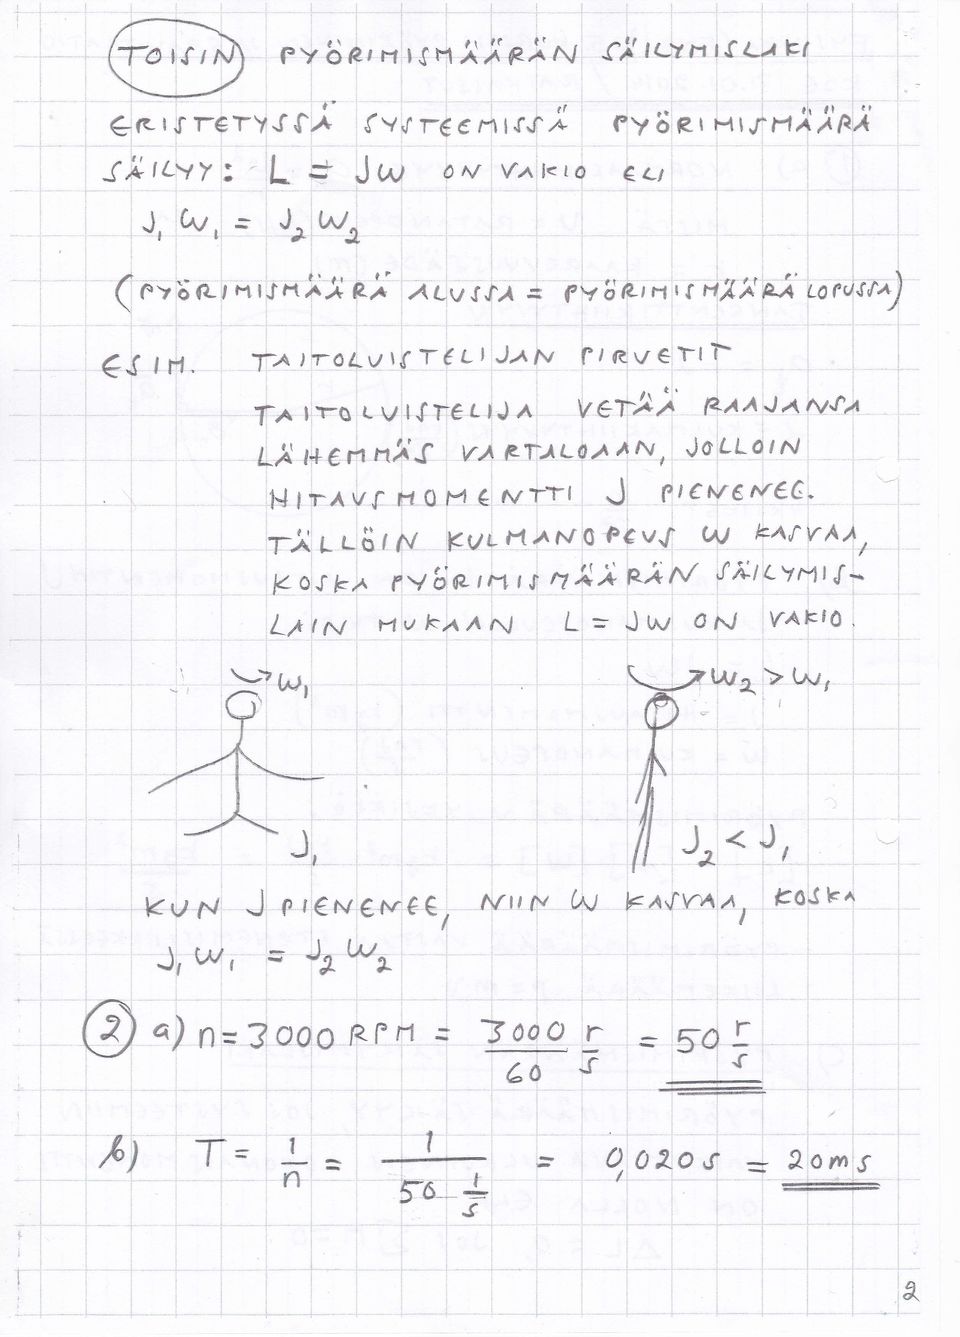 TOISIN PYÖRIMISMÄÄRÄN SÄILYMISLAKI
ERISTETYSSÄ SYSTEEMISSÄ PYÖRIMISMÄÄRÄ
SÄILYY: L = JW ON VAKIO ELI
J₁ W₁ = J₂ W₂
(PYÖRIMISMÄÄRÄ ALUSSA = PYÖRIMISMÄÄRÄ LOPUSSA)
ESIM. TAITOLUISTELIJAN PIRUETIT
TAITOLUISTELIJA VETÄÄ RAAJANSA
LÄHEMMÄS VARTALOAAN, JOLLOIN
HITAUSMOMENTTI J PIENENEE.
TÄLLÖIN KULMANOPEUS W KASVAA,
KOSKA PYÖRIMISMÄÄRÄN SÄILYMIS-
LAIN MUKAAN L = JW ON VAKIO.
W₁ W₂ > W₁
J₁ J₂ < J₁
KUN J PIENENEE, NIIN W KASVAA, KOSKA
J₁ W₁ = J₂ W₂
2 a) n = 3000 RPM = 3000/60 r/s = 50 r/s
b) T = 1/n = 1/(50 1/s) = 0,020 s = 20 ms
2